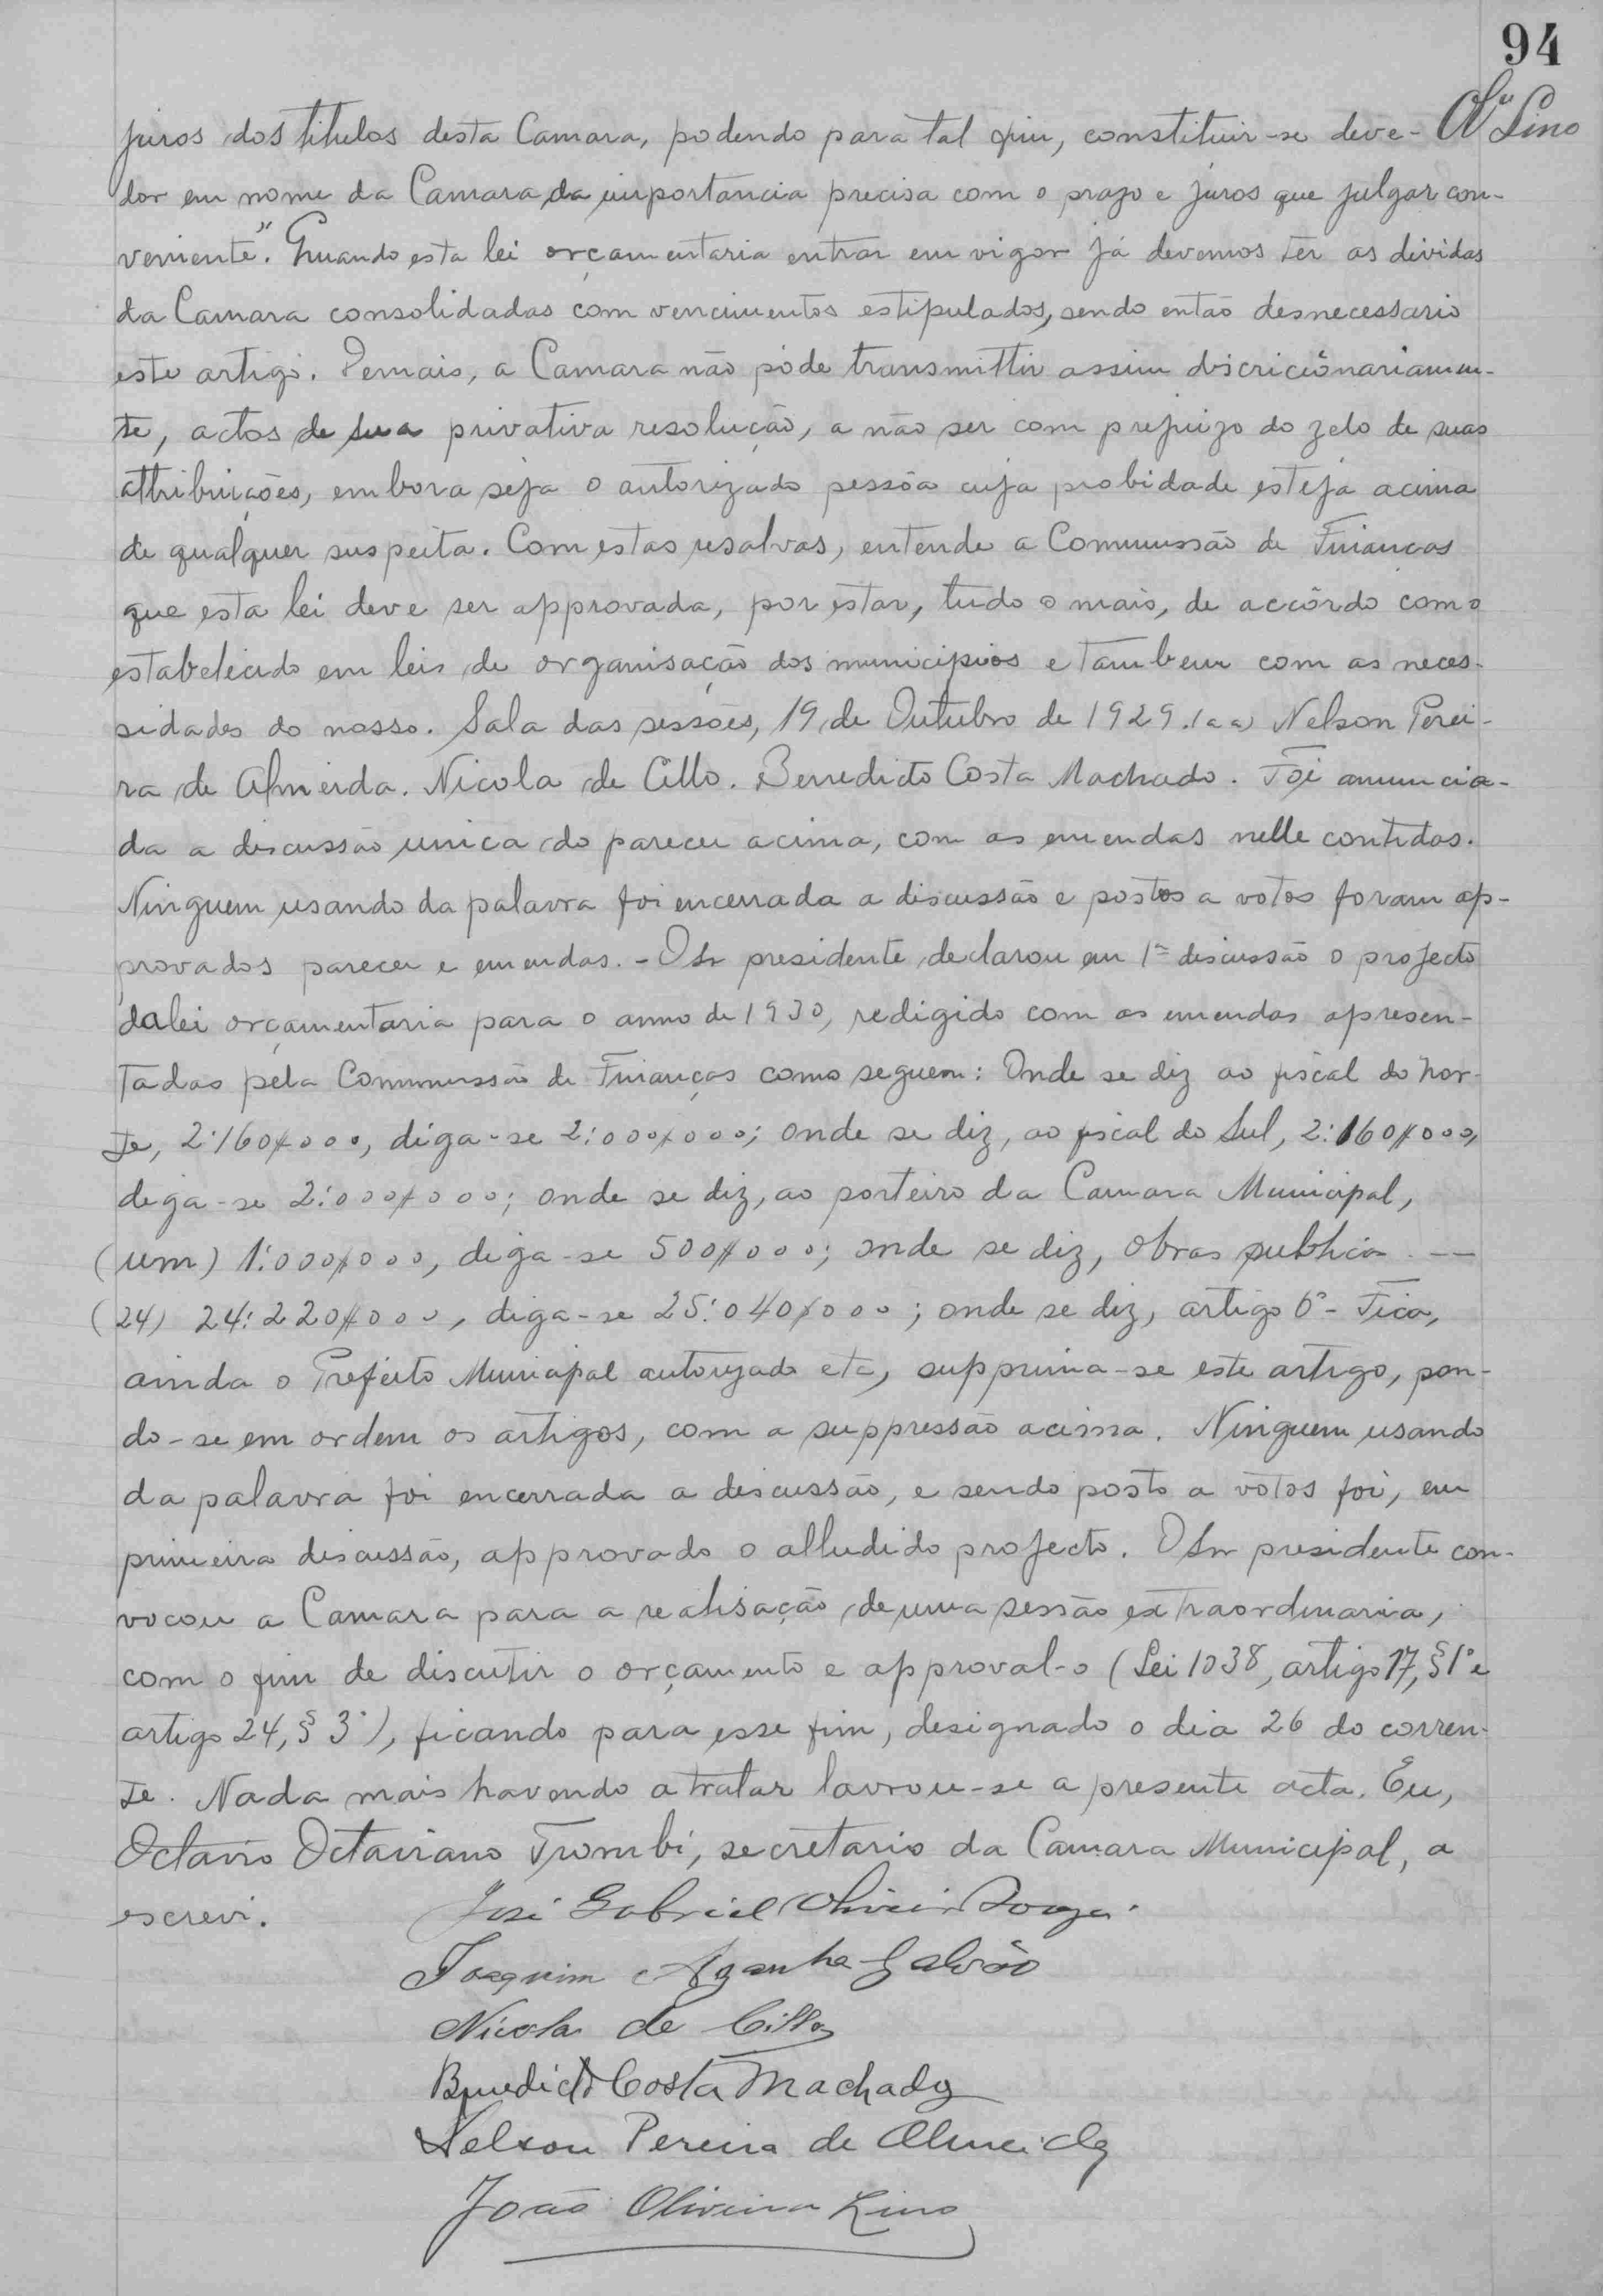 94
juros dos titulos desta Camara, podendo para tal fim, constituir-se deve- Lino
dor em nome da Camara da importancia precisa com o prazo e juros que julgar con-
veniente". Quando esta lei orçamentaria entrar em vigor já devemos ter as dividas
da Camara consolidadas com vencimentos estipulados, sendo então desnecessario
este artigo. Demais, a Camara não póde transmittir assim discricionariamen-
te, actos de sua privativa resolução, a não ser com prejuizo do zelo de suas
attribuições, embora seja o autorizado pessôa cuja probidade esteja acima
de qualquer suspeita. Com estas resalvas, entende a Commissão de Finanças
que esta lei deve ser approvada, por estar, tudo o mais, de accôrdo com o
estabelecido em leis de organisação dos municipios e tambem com as neces-
sidades do nosso. Sala das sessões, 19 de Outubro de 1929. (a a) Nelson Perei-
ra de Almeida. Nicola de Cillo. Benedicto Costa Machado. Foi annuncia-
da a discussão unica do parecer acima, com as emendas nelle contidas.
Ninguem usando da palavra foi encerrada a discussão e postos a votos foram ap-
provados parecer e emendas. - O Sr presidente declarou em 1ª discussão o projecto
da lei orçamentaria para o anno de 1930, redigido com as emendas apresen-
tadas pela Commissão de Finanças como seguem: Onde se diz ao fiscal do Nor-
te, 2:160$000, diga-se 2:000$000; onde se diz, ao fiscal do Sul, 2:160$000,
diga-se 2:000$000; onde se diz, ao porteiro da Camara Municipal,
(um) 1:000$000, diga-se 500$000; onde se diz, obras publicas. —
(24) 24:220$000, diga-se 25:040$000; onde se diz, artigo 6º - Fica,
ainda o Prefeito Municipal autorizado etc, supprima-se este artigo, pon-
do-se em ordem os artigos, com a suppressão acima. Ninguem usando
da palavra foi encerrada a discussão, e sendo posto a votos foi, em
primeira discussão, approvado o alludido projecto. O Sr presidente con-
vocou a Camara para a realisação de uma sessão extraordinaria,
com o fim de discutir o orçamento e approval-o (Lei 1038, artigo 17, § 1º e
artigo 24, § 3º), ficando para esse fim, designado o dia 26 do corren-
te. Nada mais havendo a tratar lavrou-se a presente acta. Eu,
Octavio Octaviano Trombi, secretario da Camara Municipal, a
escrevi. José Gabriel Oliveira Souza.
Joaquim Azanha Galvão
Nicola de Cillo
Benedicto Costa Machado
Nelson Pereira de Almeida
João Oliveira Lino